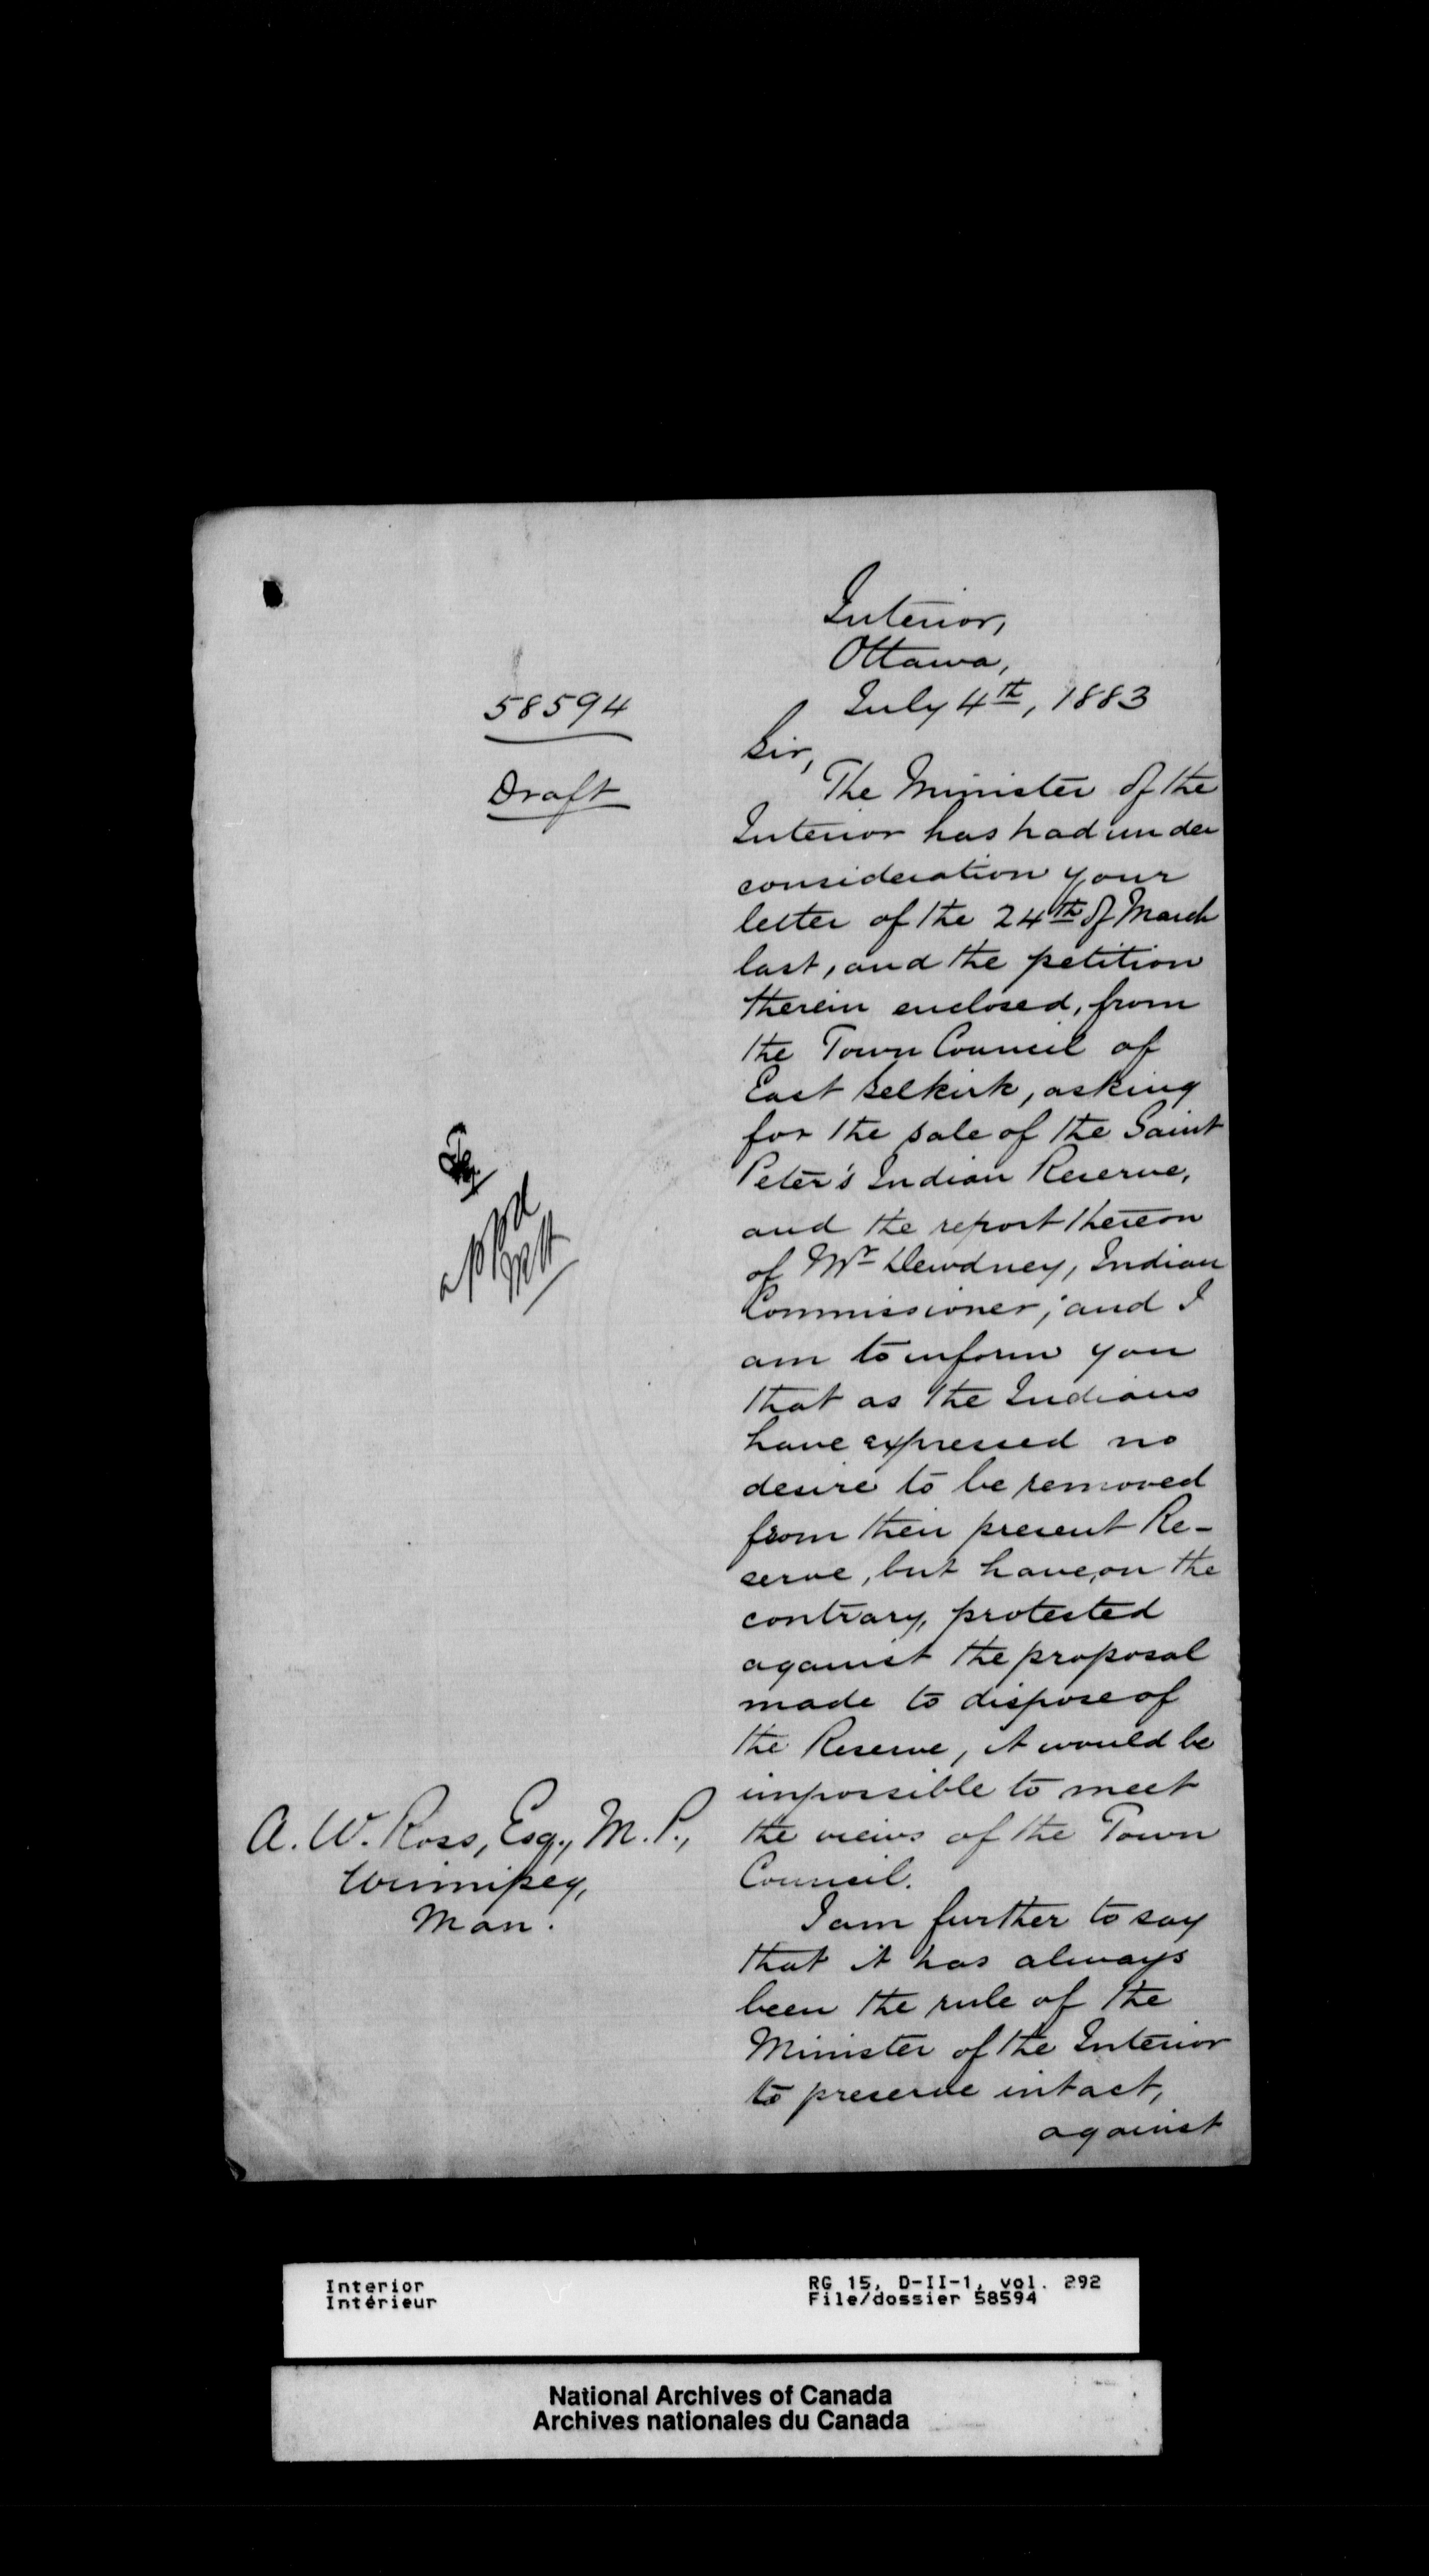 Interior,
Ottawa,
July 4th, 1883
58594
Draft
Sir,
The Minister of the
Interior has had under
consideration your
letter of the 24th of March
last, and the petition
therein enclosed, from
the Town Council of
East Selkirk, asking
for the sale of the Saint
Peter's Indian Reserve,
and the report thereon
of Mr Dewdney, Indian
Commissioner; and I
am to inform you
that as the Indians
have expressed no
desire to be removed
from their present Re-
serve, but have, on the
contrary, protested
against the proposal
made to dispose of
the Reserve, it would be
impossible to meet
the views of the Town
Council.
I am further to say
that it has always
been the rule of the
Minister of the Interior
to preserve intact,
against
A. W. Ross, Esq., M. P.,
Winnipeg,
Man.
Interior
Intérieur
RG 15, D-II-1, vol. 292
File/dossier 58594
National Archives of Canada
Archives nationales du Canada